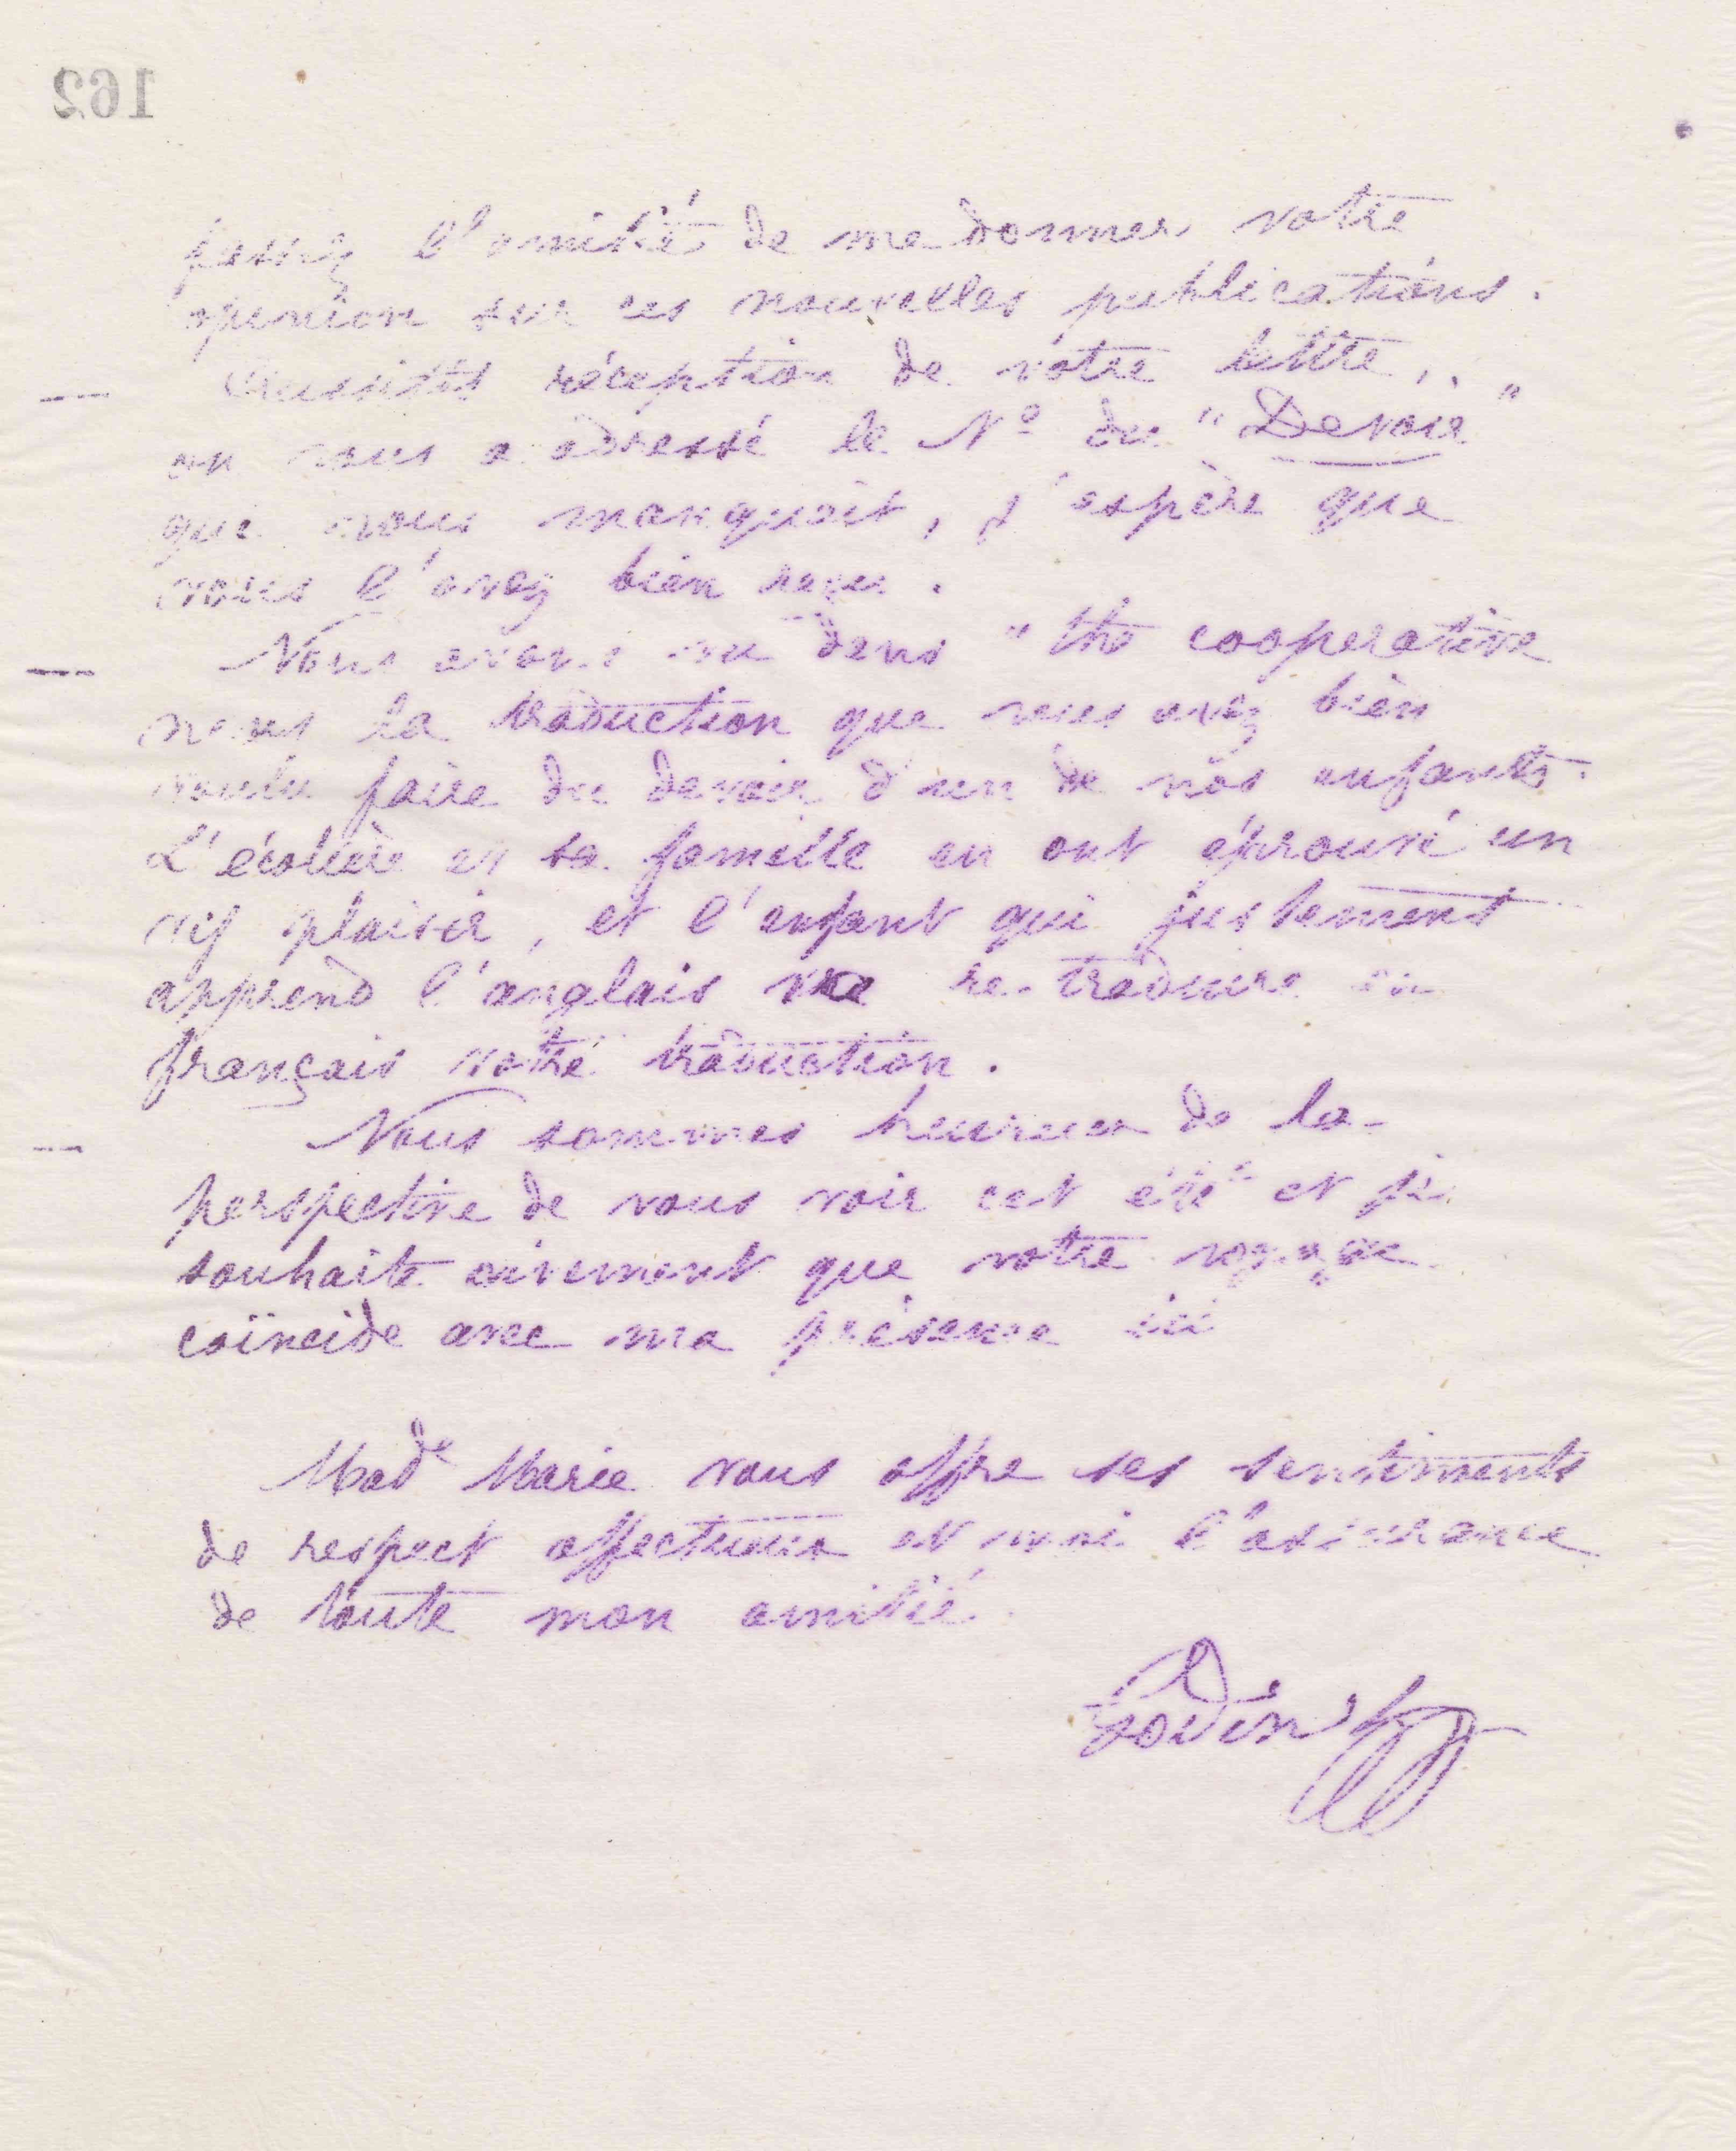 162
fassiez l'amitié de me donner votre
opinion sur ces nouvelles publications.
Aussitôt réception de votre lettre,
on vous a adressé le N° du "Devoir"
qui vous manquait, j'espère que
vous l'avez bien reçu.
Nous avons vu dans "the cooperative
news la traduction que vous avez bien
voulu faire du devoir d'un de nos enfants.
L'écolière et sa famille en ont éprouvé un
vif plaisir, et l'enfant qui justement
apprend l'anglais va re-traduire en
français votre traduction.
Nous sommes heureux de la
perspective de vous voir cet été et je
souhaite vivement que votre voyage
coïncide avec ma présence ici
Made Marie vous offre ses sentiments
de respect affectueux et moi l'assurance
de toute mon amitié.
Godin